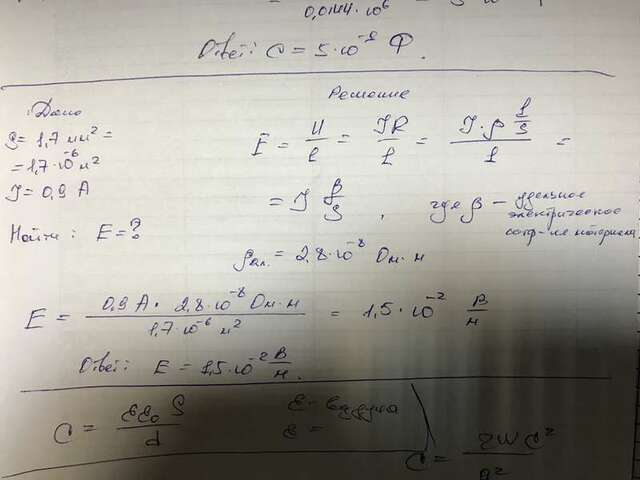 0,0144·10⁶
Ответ: C = 5·10⁻⁸ Ф.
Дано
S = 1,7 мм² =
= 1,7·10⁻⁶ м²
I = 0,9 А
Найти: E = ?
Решение
E = U/l = IR/l = I·ρ l/S / l =
= I ρ/S , где ρ – удельное
электрическое
сопр-ие материала
ρал. = 2,8·10⁻⁸ Ом·м
E = 0,9 А · 2,8·10⁻⁸ Ом·м / 1,7·10⁻⁶ м² = 1,5·10⁻² В/м
Ответ: E = 1,5·10⁻² В/м.
C = εε₀ S / d
ε =
C = 2Wd² / g²